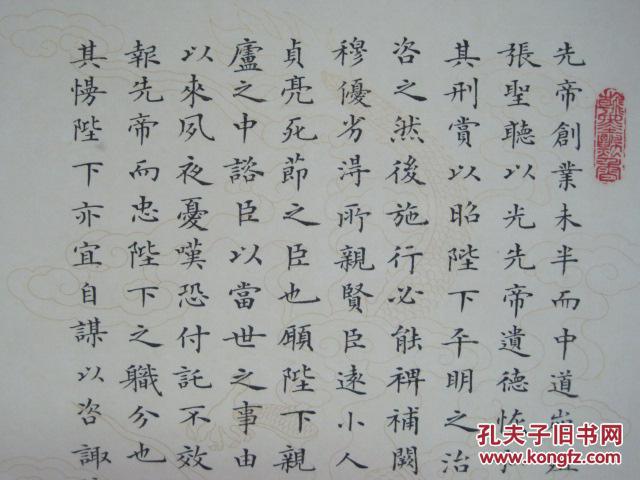 先帝創業未半而中道崩殂
張聖聽以光先帝遺德恢
其刑賞以昭陛下平明之治
咨之然後施行必能裨補闕
穆優劣淂所親賢臣遠小人
貞亮死節之臣也願陛下親
廬之中諮臣以當世之事由
以來夙夜憂嘆恐付託不效
報先帝而忠陛下之職分也
其慢陛下亦宜自謀以咨諏
孔夫子旧书网
www.kongfz.com